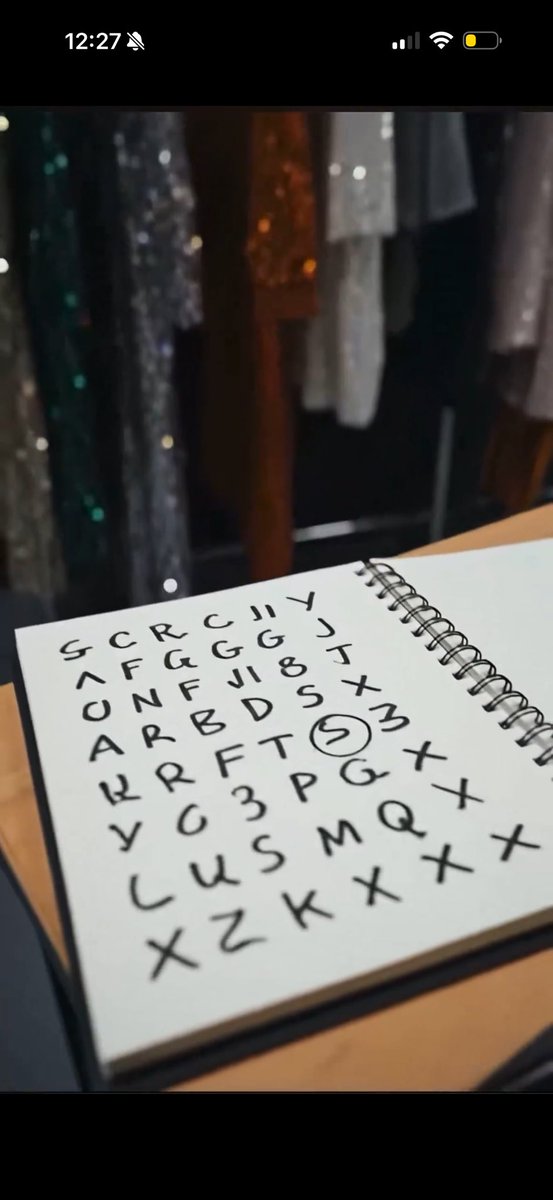 12:27
G C R C II Y
Λ F G G G J
O N F JI 8 J
A R B D S X
K R F T S 3
Y C 3 P G X
L U S M Q X
X Z K X X X